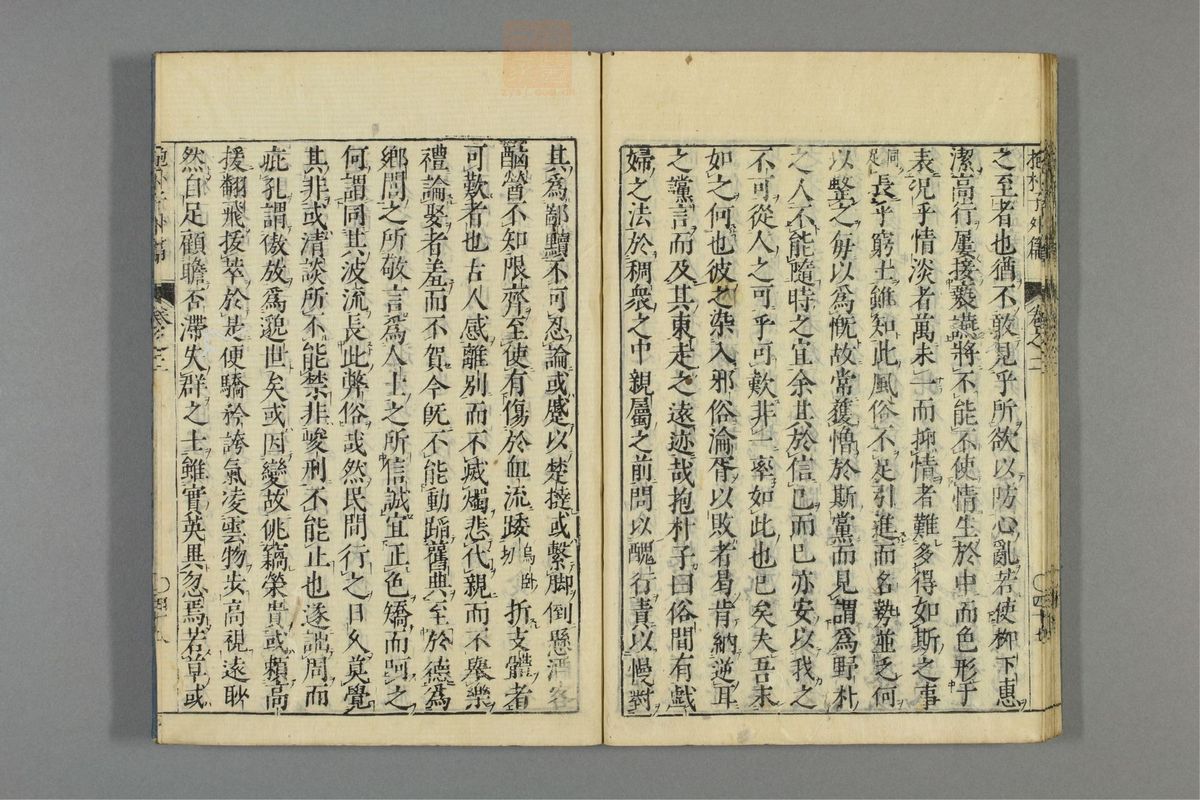 抱朴子外篇 卷之二 四十七
之至者也猶不敢見乎所欲以防心亂若使柳下惠
潔高行屢接褻讌將不能不使情生於中而色形于
表况乎情淡者萬未一而抑情者難多得如斯之事
何足長乎窮士雖知此風俗不足引進而名勢並乏何
以整之每以爲慨故常獲憎於斯黨而見謂爲野朴
之人不能隨時之宜余其於信已而已亦安以我之
不可從人之可乎可歎非一率如此也已矣夫吾末
如之何也彼之染入邪俗淪胥以敗者曷肯納逆耳
之黨言而及其東走之遠迹哉抱朴子曰俗間有戲
婦之法於稠衆之中親屬之前問以醜行責以慢對
其爲鄙黷不可忍論或蹙以楚撻或繫脚倒懸酒客
酗醟不知限齊至使有傷於血流踒烏臥切折支體者
可歎者也古人感離別而不滅燭悲代親而不舉樂
禮論娶者羞而不賀今旣不能動蹈舊典至於德爲
鄉閭之所敬言爲人士之所信誠宜正色矯而呵之
何謂同其波流長此弊俗哉然民間行之日久莫覺
其非或清談所不能禁非峻刑不能止也遂謂周而
疵孔謂傲放爲邈世矣或因變故佻竊榮貴或賴高
援翻飛拔萃於是便驕矜誇氣凌雲物步高視遠眇
然自足顧瞻否滯失群之士雖實英異忽焉若草或
抱朴子外篇 卷之二 四十八